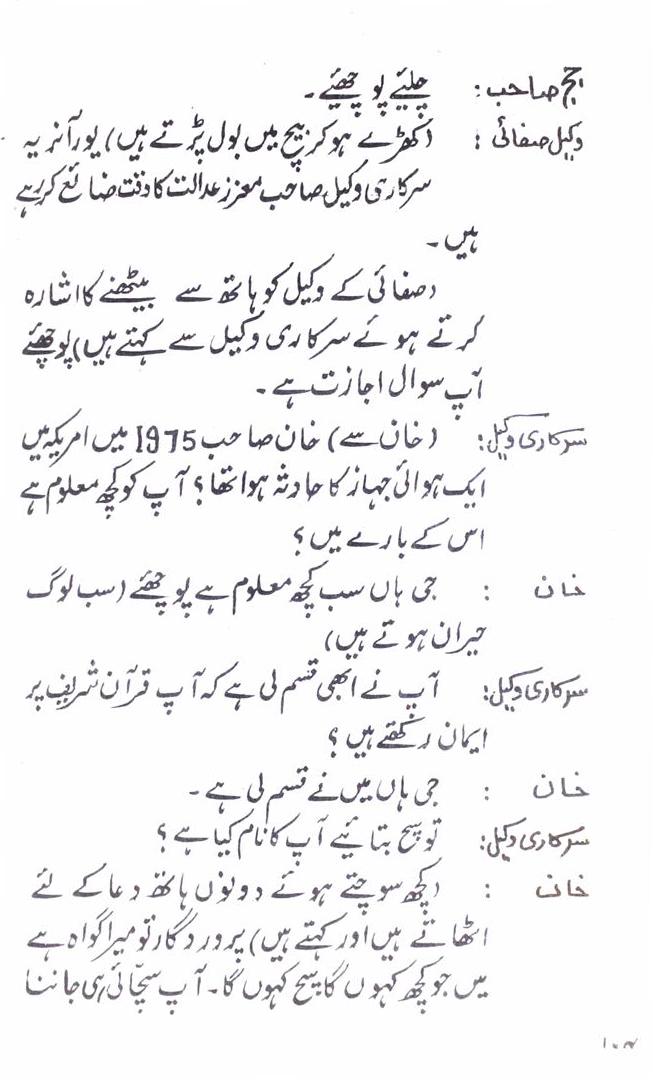 جج صاحب : چلیئے پوچھیئے ۔
وکیل صفائی : (کھڑے ہو کر بیچ میں بول پڑتے ہیں) یور آنر یہ
سرکاری وکیل صاحب معزز عدالت کا وقت ضائع کر رہے
ہیں ۔
(صفائی کے وکیل کو ہاتھ سے بیٹھنے کا اشارہ
کرتے ہوئے سرکاری وکیل سے کہتے ہیں) پوچھئے
آپ سوال اجازت ہے ۔
سرکاری وکیل : (خان سے) خان صاحب 1975 میں امریکہ میں
ایک ہوائی جہاز کا حادثہ ہوا تھا؟ آپ کو کچھ معلوم ہے
اس کے بارے میں ؟
خان : جی ہاں سب کچھ معلوم ہے پوچھئے (سب لوگ
حیران ہوتے ہیں)
سرکاری وکیل : آپ نے ابھی قسم لی ہے کہ آپ قرآن شریف پر
ایمان رکھتے ہیں ؟
خان : جی ہاں میں نے قسم لی ہے ۔
سرکاری وکیل : تو سچ بتائیے آپ کا نام کیا ہے ؟
خان : (کچھ سوچتے ہوئے دونوں ہاتھ دعا کے لئے
اٹھاتے ہیں اور کہتے ہیں) پروردگار تو میرا گواہ ہے
میں جو کچھ کہوں گا سچ کہوں گا ۔ آپ سچّائی ہی جاننا